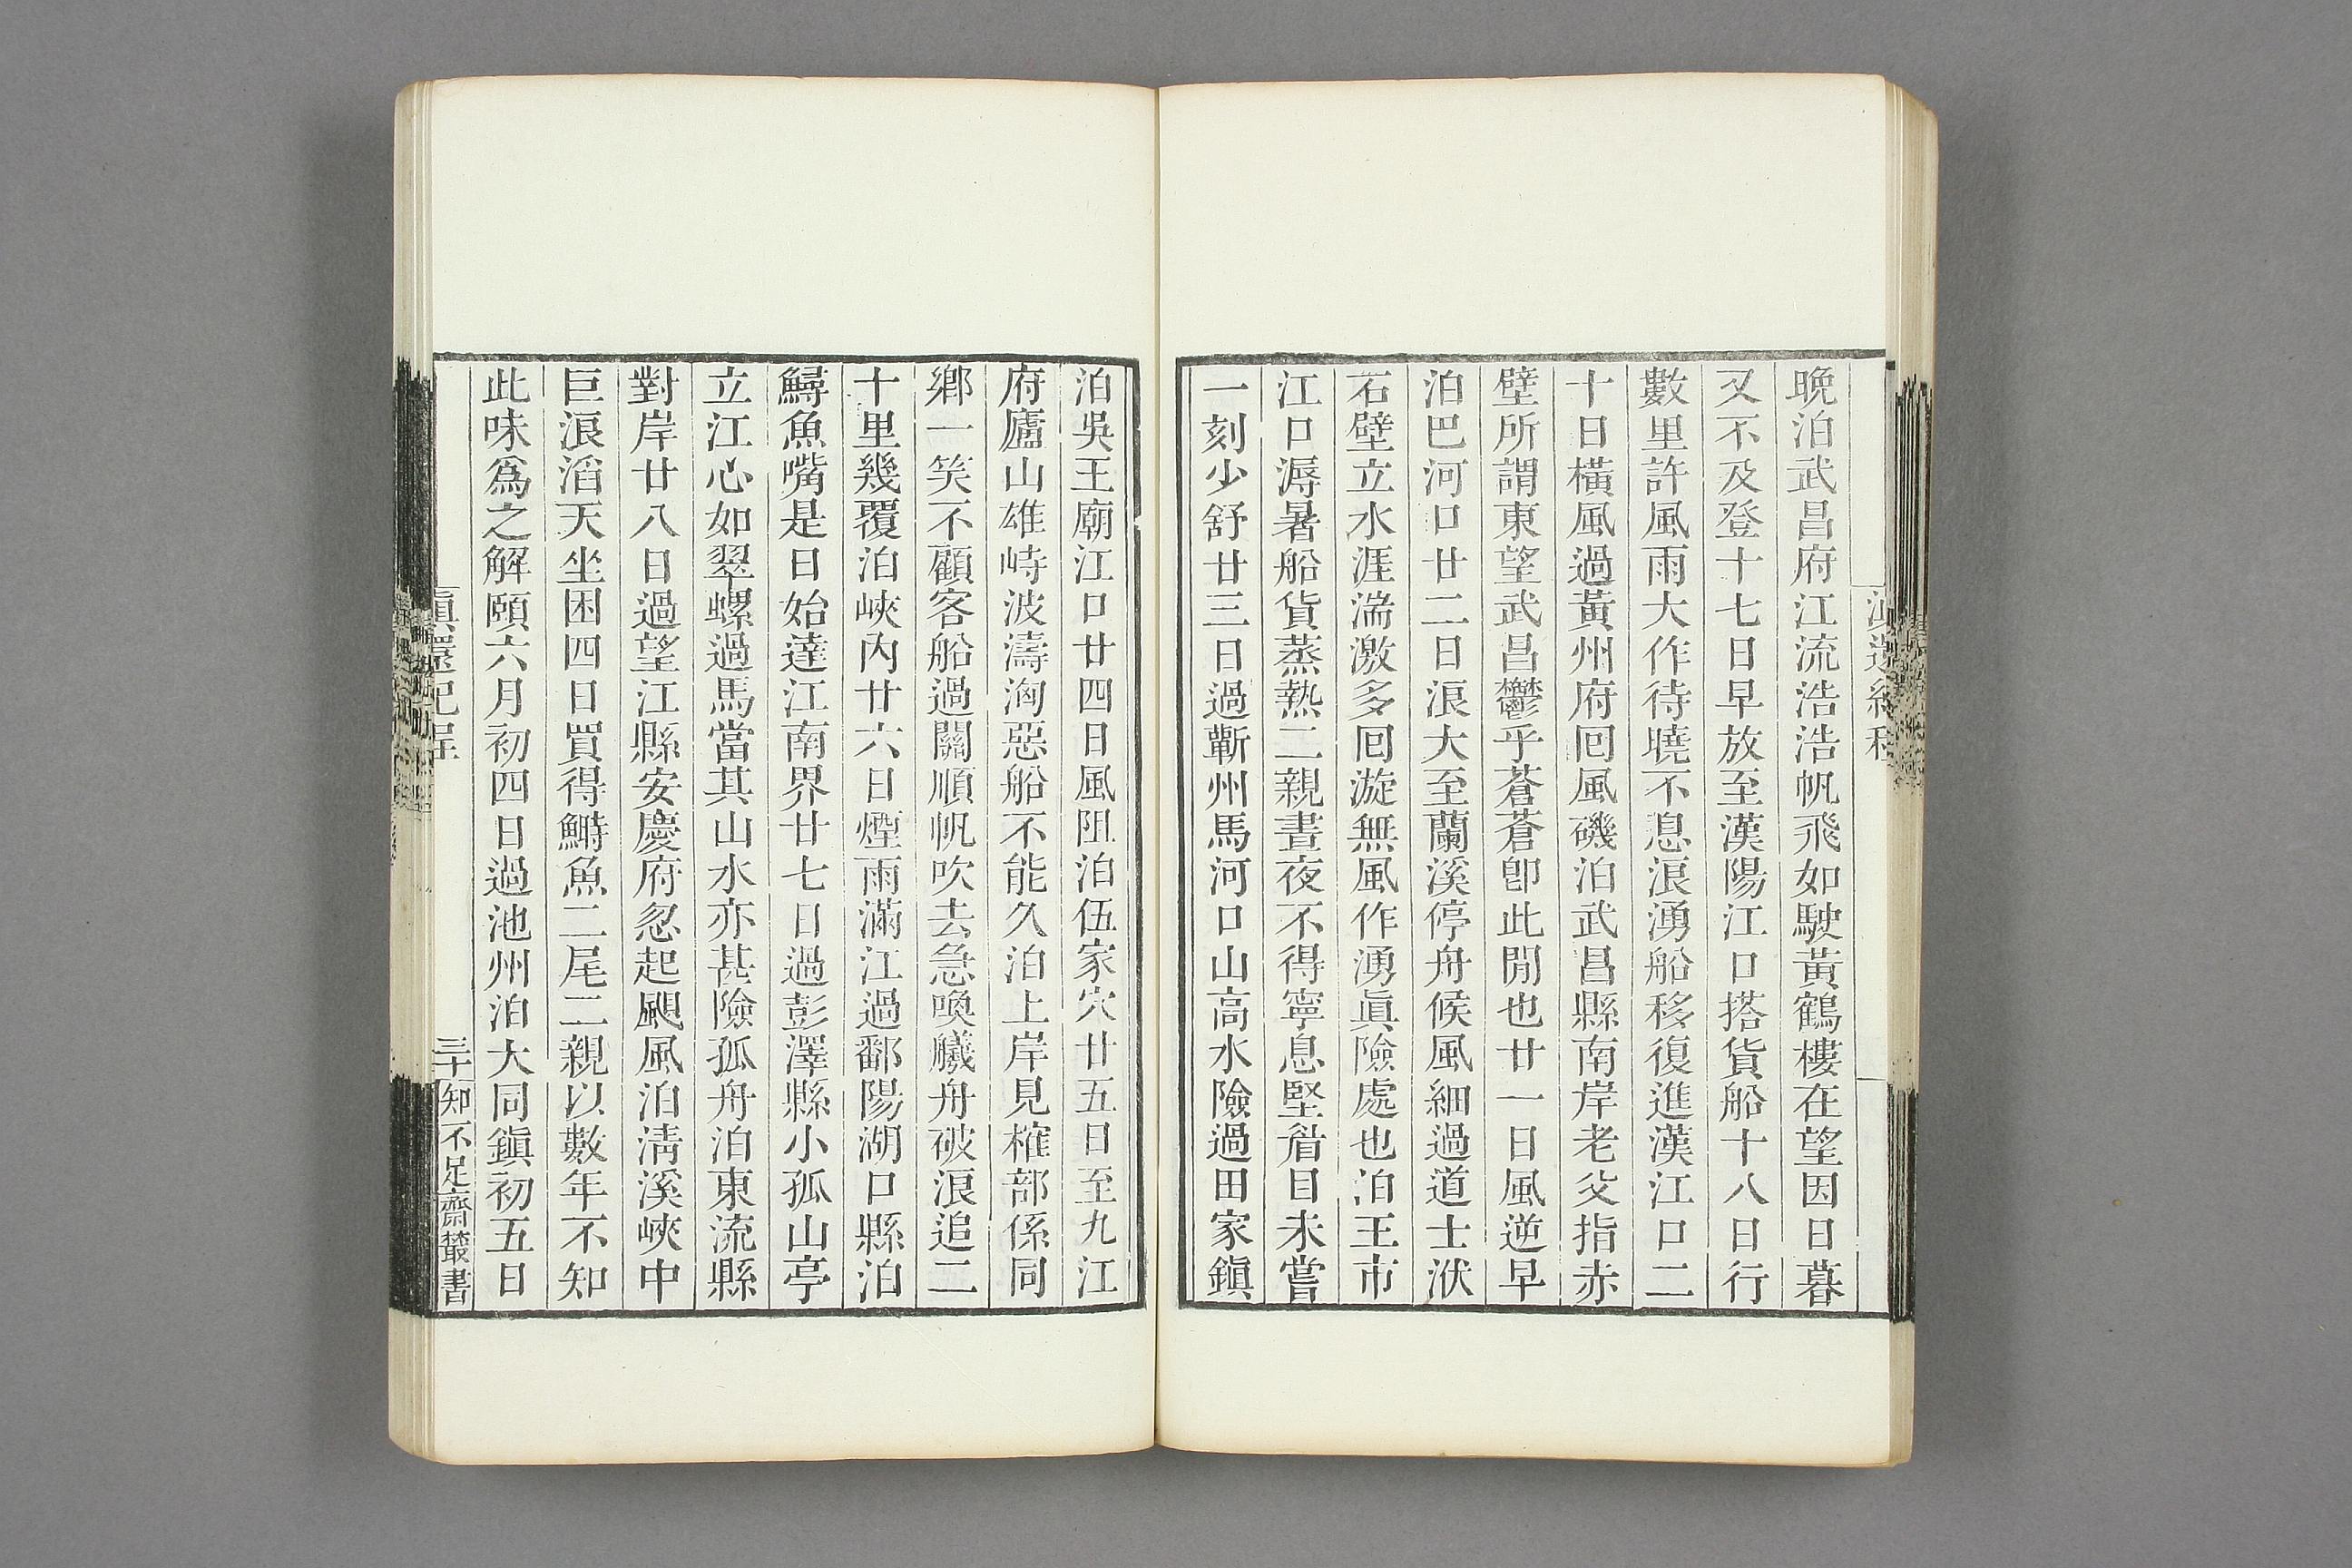 晚泊武昌府江流浩浩帆飛如駛黃鶴樓在望因日暮
又不及登十七日早放至漢陽江口搭貨船十八日行
數里許風雨大作待曉不息浪湧船移復進漢江口二
十日橫風過黃州府囘風磯泊武昌縣南岸老父指赤
壁所謂東望武昌鬱乎蒼蒼卽此閒也廿一日風逆早
泊巴河口廿二日浪大至蘭溪停舟候風細過道士洑
石壁立水涯湍激多囘漩無風作湧眞險處也泊王市
江口溽暑船貨蒸熱二親晝夜不得寧息堅眥目未嘗
一刻少舒廿三日過蘄州馬河口山高水險過田家鎭
泊吳王廟江口廿四日風阻泊伍家穴廿五日至九江
府廬山雄峙波濤洶惡船不能久泊上岸見榷部係同
鄉一笑不顧客船過關順帆吹去急喚艤舟破浪追二
十里幾覆泊峽內廿六日煙雨滿江過鄱陽湖口縣泊
鱘魚嘴是日始達江南界廿七日過彭澤縣小孤山亭
立江心如翠螺過馬當其山水亦甚險孤舟泊東流縣
對岸廿八日過望江縣安慶府忽起颶風泊淸溪峽中
巨浪滔天坐困四日買得鰣魚二尾二親以數年不知
此味爲之解頤六月初四日過池州泊大同鎭初五日
滇還記程
三十
知不足齋叢書